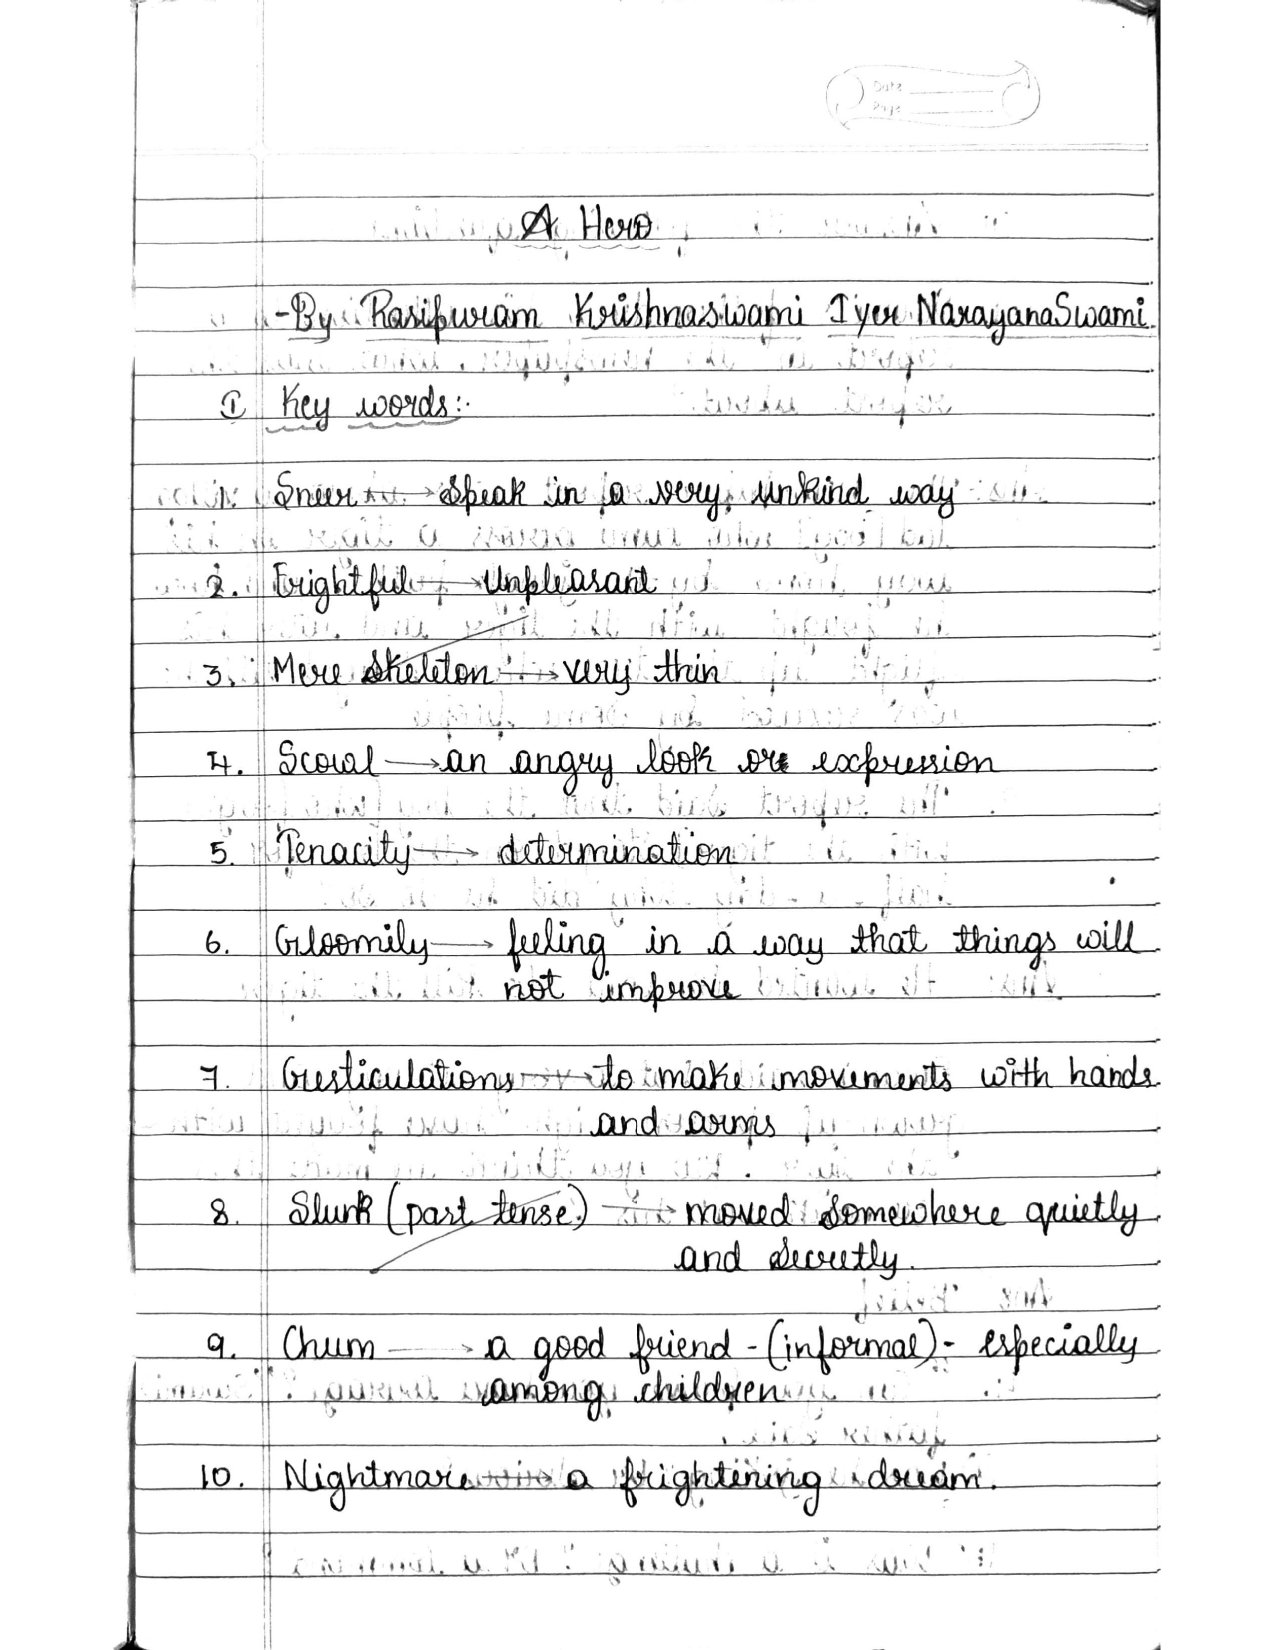 A Hero
-By Rasipuram Krishnaswami Iyer NarayanaSwami.
① Key words:-
1. Sneer → Speak in a very unkind way
2. Frightful → Unpleasant
3. Mere Skeleton → very thin
4. Scowl → an angry look or expression
5. Tenacity → determination
6. Gloomily → feeling in a way that things will
not improve
7. Gesticulations → to make movements with hands
and arms
8. Slunk (past tense) → moved somewhere quietly
and secretly.
9. Chum → a good friend - (informal) - especially
among children
10. Nightmare → a frightening dream.